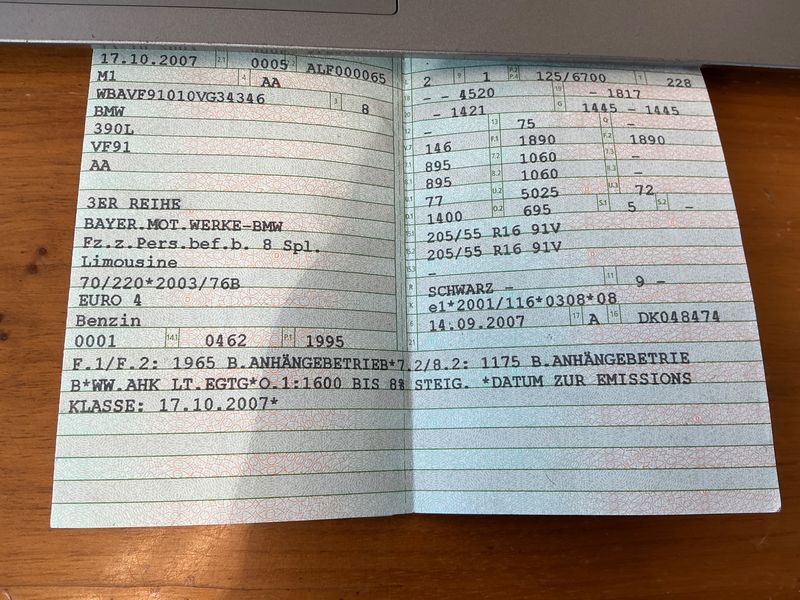 17.10.2007 2.1 0005 ALF000065
M1 4 AA
WBAVF91010VG34346 3 8
BMW
390L
VF91
AA
3ER REIHE
BAYER.MOT.WERKE-BMW
Fz.z.Pers.bef.b. 8 Spl.
Limousine
70/220*2003/76B
EURO 4
Benzin
0001 14.1 0462 P.1 1995
2 9 1 P.2 P.4 125/6700 T 228
18 - - 4520 19 - 1817
20 - 1421 G 1445 - 1445
12 - 13 75 Q -
V.7 146 F.1 1890 F.2 1890
7.1 895 7.2 1060 7.3 -
8.1 895 8.2 1060 8.3 -
U.1 77 U.2 5025 U.3 72
O.1 1400 O.2 695 S.1 5 S.2 -
15.1 205/55 R16 91V
15.2 205/55 R16 91V
15.3 -
R SCHWARZ - 11 9 -
K e1*2001/116*0308*08
6 14.09.2007 17 A 16 DK048474
21
F.1/F.2: 1965 B.ANHÄNGEBETRIEB*7.2/8.2: 1175 B.ANHÄNGEBETRIE
B*WW.AHK LT.EGTG*O.1:1600 BIS 8% STEIG. *DATUM ZUR EMISSIONS
KLASSE: 17.10.2007*